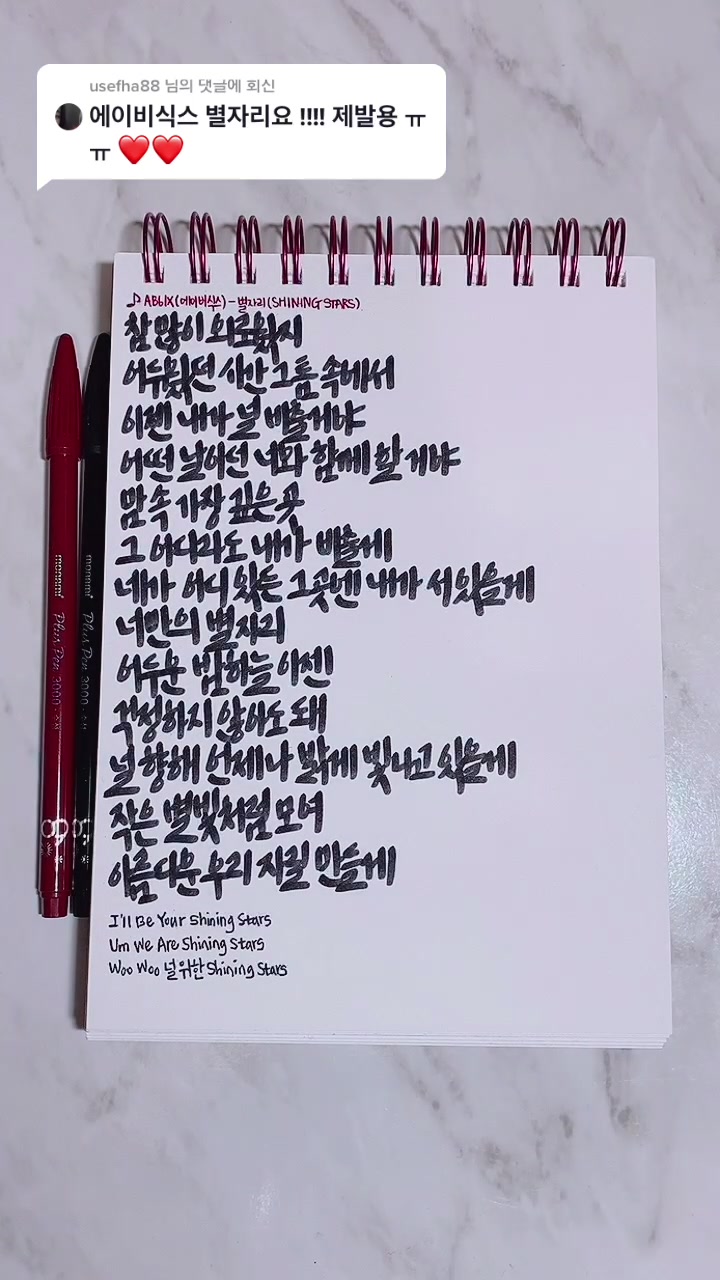 usefha88 님의 댓글에 회신
에이비식스 별자리요 !!!! 제발용 ㅠ
ㅠ ❤️❤️
♪ AB6IX(에이비식스) - 별자리(SHINING STARS)
참 많이 외로웠지
어두웠던 시간 그 틈 속에서
이젠 내가 널 비출게야
어떤 날이던 너와 함께 할 거야
맘 속 가장 깊은 곳
그 어디라도 내가 비출게
네가 어디 있든 그곳엔 내가 서있을게
너만의 별자리
어두운 밤하늘 이젠
걱정하지 않아도 돼
널 향해 언제나 밝게 빛나고 있을게
작은 별빛처럼 모여
아름다운 우리 자릴 만들게
I'll Be Your Shining Stars
Um We Are Shining Stars
Woo Woo 널 위한 Shining Stars
monami Plus Pen 3000
monami Plus Pen 3000